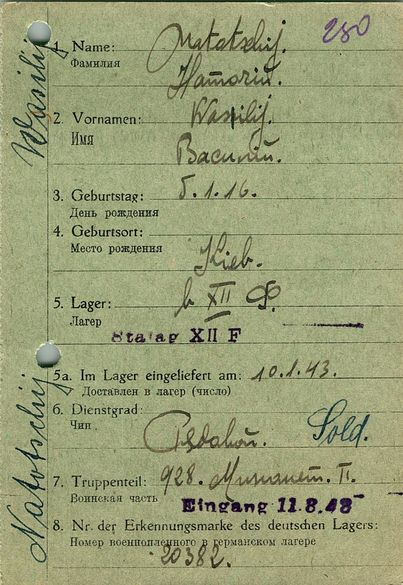 280
1. Name: Natotschij.
Фамилия
2. Vornamen: Wasilij.
Имя
Василий.
3. Geburtstag: 5.1.16.
День рождения
4. Geburtsort:
Место рождения
Kieb.
5. Lager: b XII Ф.
Лагер
Stalag XII F
5a. Im Lager eingeliefert am: 10.1.43.
Доставлен в лагер (число)
6. Dienstgrad:
Чин
Sold.
7. Truppenteil: 928. П.
Воинская часть
Eingang 11.8.43
8. Nr. der Erkennungsmarke des deutschen Lagers:
Номер военнопленного в германском лагере
20382.
Wasilij
Natotschij